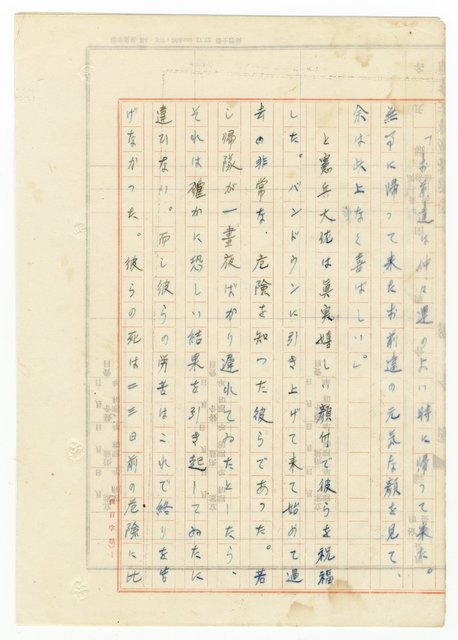 「お前達は仲々運のよい時に帰って来た。
無事に帰って来たお前達の元気な顔を見て、
余は此上なく喜ばしい」。
と憲兵大佐は真実嬉しい顔付で彼らを祝福
した。バンドウンに引き上げて来て始めて過
去の非常な、危険を知つた彼らであつた。若
し帰隊が一晝夜ばかり遅れてゐたとしたら、
それは確かに恐しい結果を引き起してゐたに
違ひない。而し彼らの労苦はこれで終りを告
げなかつた。彼らの死は二三日前の危険に比